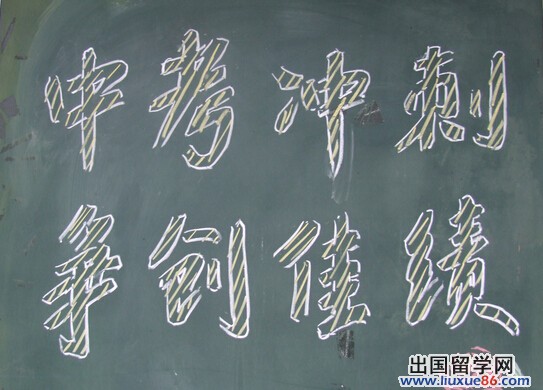 中考冲刺
争创佳绩
出国留学网
www.liuxue86.com